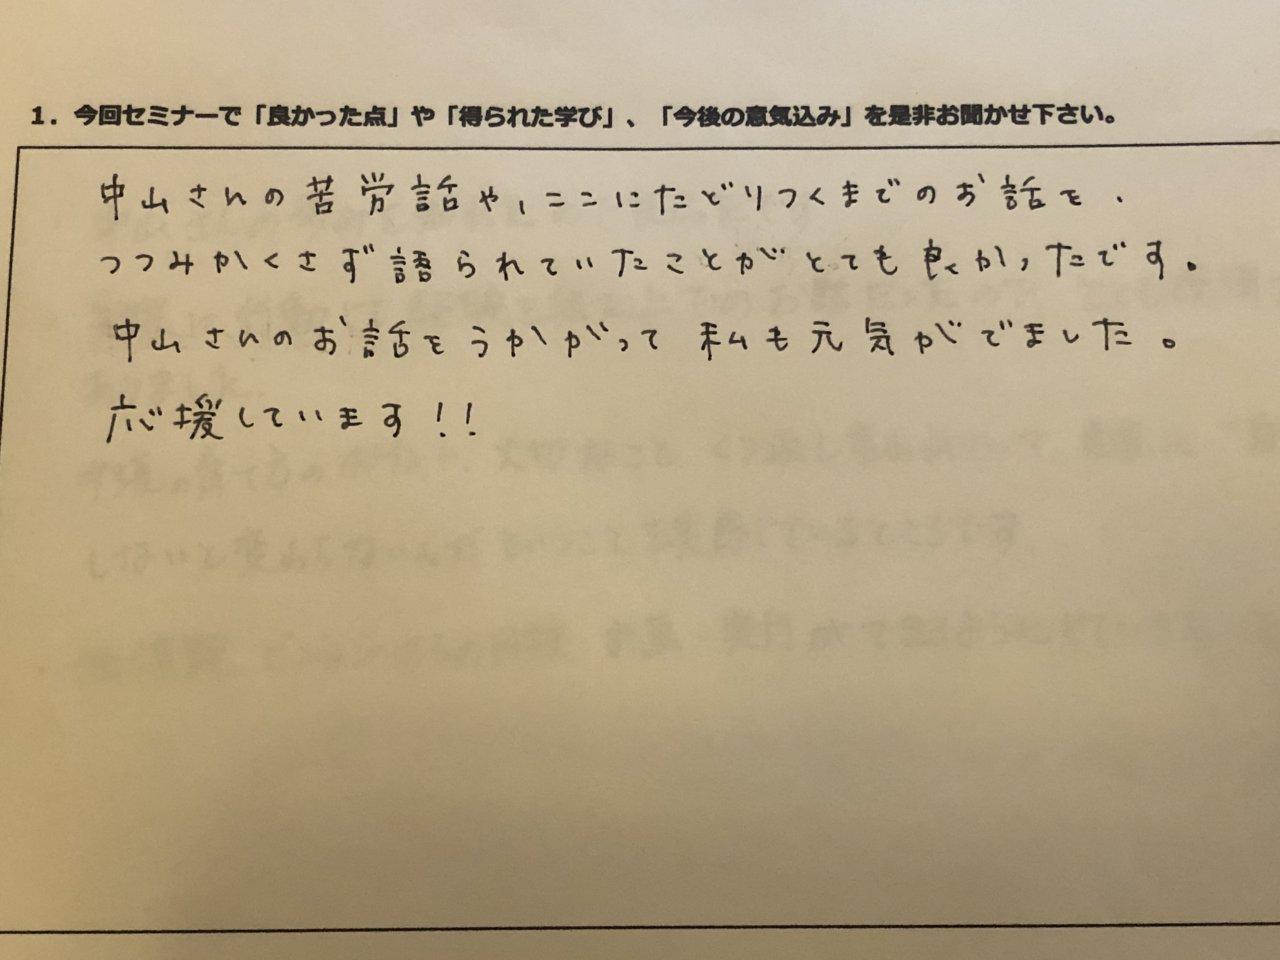 1. 今回セミナーで「良かった点」や「得られた学び」、「今後の意気込み」を是非お聞かせ下さい。
中山さんの苦労話や、ここにたどりつくまでのお話を、
つつみかくさず語られていたことがとても良かったです。
中山さんのお話をうかがって私も元気がでました。
応援しています!!